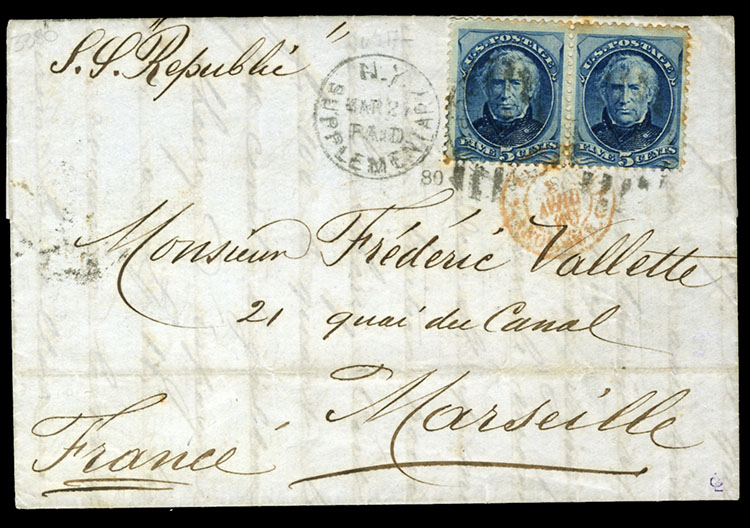 S. S. "Republic"
N.Y.
MAR 27
PAID
SUPPLEMENTARY
U.S. POSTAGE
FIVE 5 CENTS
U.S. POSTAGE
FIVE 5 CENTS
80
Monsieur Frédéric Vallette
21 quai du Canal
Marseille
France